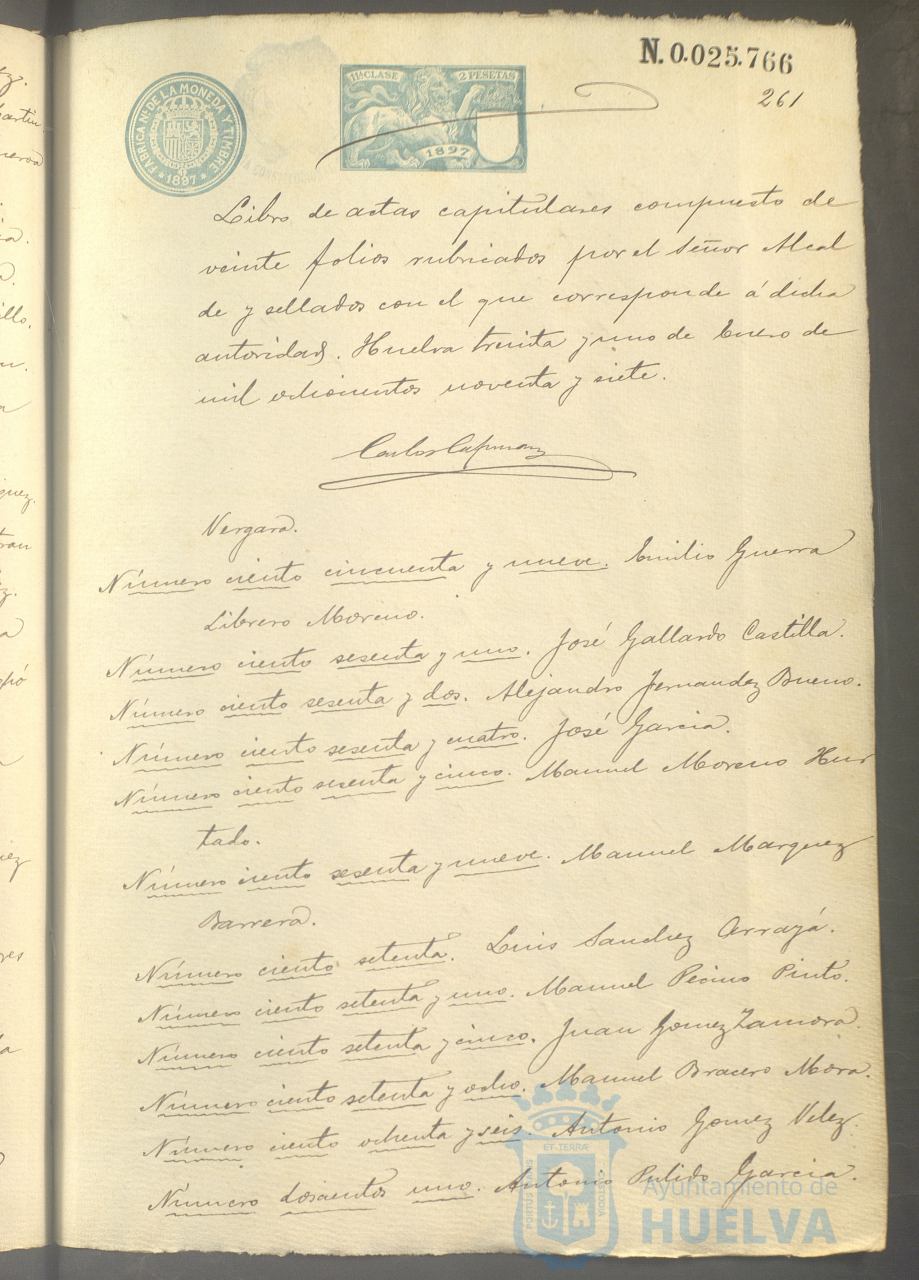 N. 0.025.766
261
11ª CLASE
2 PESETAS
1897
FABRICA Nᴸ DE LA MONEDA Y TIMBRE
1897
Libro de actas capitulares compuesto de
veinte folios rubricados por el Señor Alcal
de y sellados con el que corresponde á dicha
autoridad. Huelva treinta y uno de Enero de
mil ochocientos noventa y siete.
Carlos
Vergara.
Número ciento cincuenta y nueve. Emilio Guerra
Librero Moreno.
Número ciento sesenta y uno. José Gallardo Castilla.
Número ciento sesenta y dos. Alejandro Fernandez Bueno.
Número ciento sesenta y cuatro. José Garcia.
Número ciento sesenta y cinco. Manuel Moreno Hur
tado.
Número ciento sesenta y nueve. Manuel Marquez
Barrera.
Número ciento setenta. Luis Sanchez Arrayá.
Número ciento setenta y uno. Manuel Pecino Pinto.
Número ciento setenta y cinco. Juan Gomez Zamora.
Número ciento setenta y ocho. Manuel Bracero Mora.
Número ciento ochenta y seis. Antonio Gomez Velez.
Número doscientos uno. Antonio Pulido Garcia.
PORTUS MARIS
ET TERRÆ
CUSTODIA
Ayuntamiento de
HUELVA